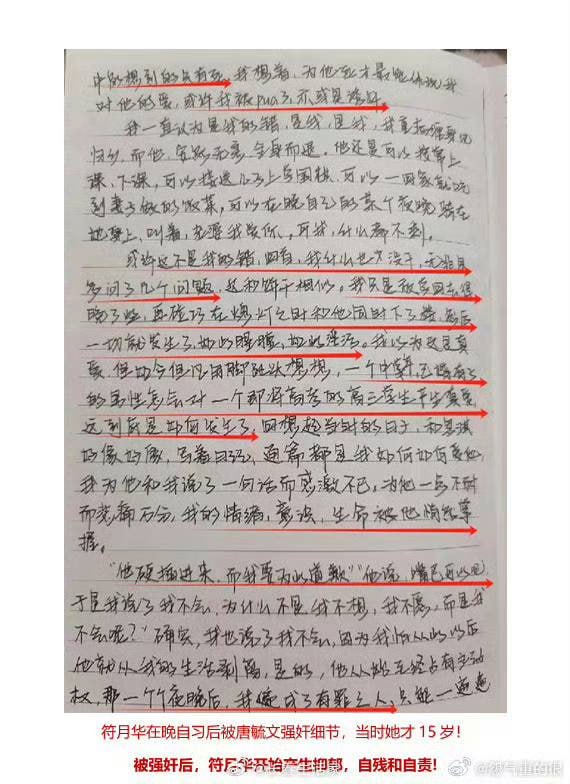 中能想到的只有死，我想着，为他死才最能体现我
对他的爱，或许我被pua了，亦或是洗脑
我一直认为是我的错，是我，是我，我
而他，全身而退。他还是可以按常上
课，下课，可以接送儿子上学回校，可以一回家就吃
到妻子做的饭菜，可以在晚自习的某个夜晚骑在
地垫上，叫着，可我，什么都不剩。
或许这不是我的错，四年，我什么也没干，无非是
多问了几个问题，我只是
晚了些，再碰巧在熄灯之时和他同时下了楼，然后
一切就发生了，如此，如此淫荡。我以为这是真
爱，但如今但凡用脚趾头想想，一个中年，已婚有子
的男性怎会对一个即将高考的高三学生产生真爱
这到底是如何发生了，回想起当时的日子，和
好像好像，写着日记，通篇都是我如何如何爱他，
我为他和我说了一句话而感激不已，为他一点不耐
而悲痛万分，我的情绪，意识，生命被他悄然掌
握。
“他硬插进来，而我要为此道歉”“他说，嘴巴可以吧
于是我说了我不会，为什么不是我不想，我不愿，而是我
不会呢？”确实，我也说了我不会，因为我怕从此以后
他就从我的生活剥离，是的，他从始至终占有主动
权，那一个个夜晚后，我变成了有罪之人，只能一遍遍
符月华在晚自习后被唐毓文强奸细节，当时她才 15 岁！
被强奸后，符月华开始产生抑郁，自残和自责！